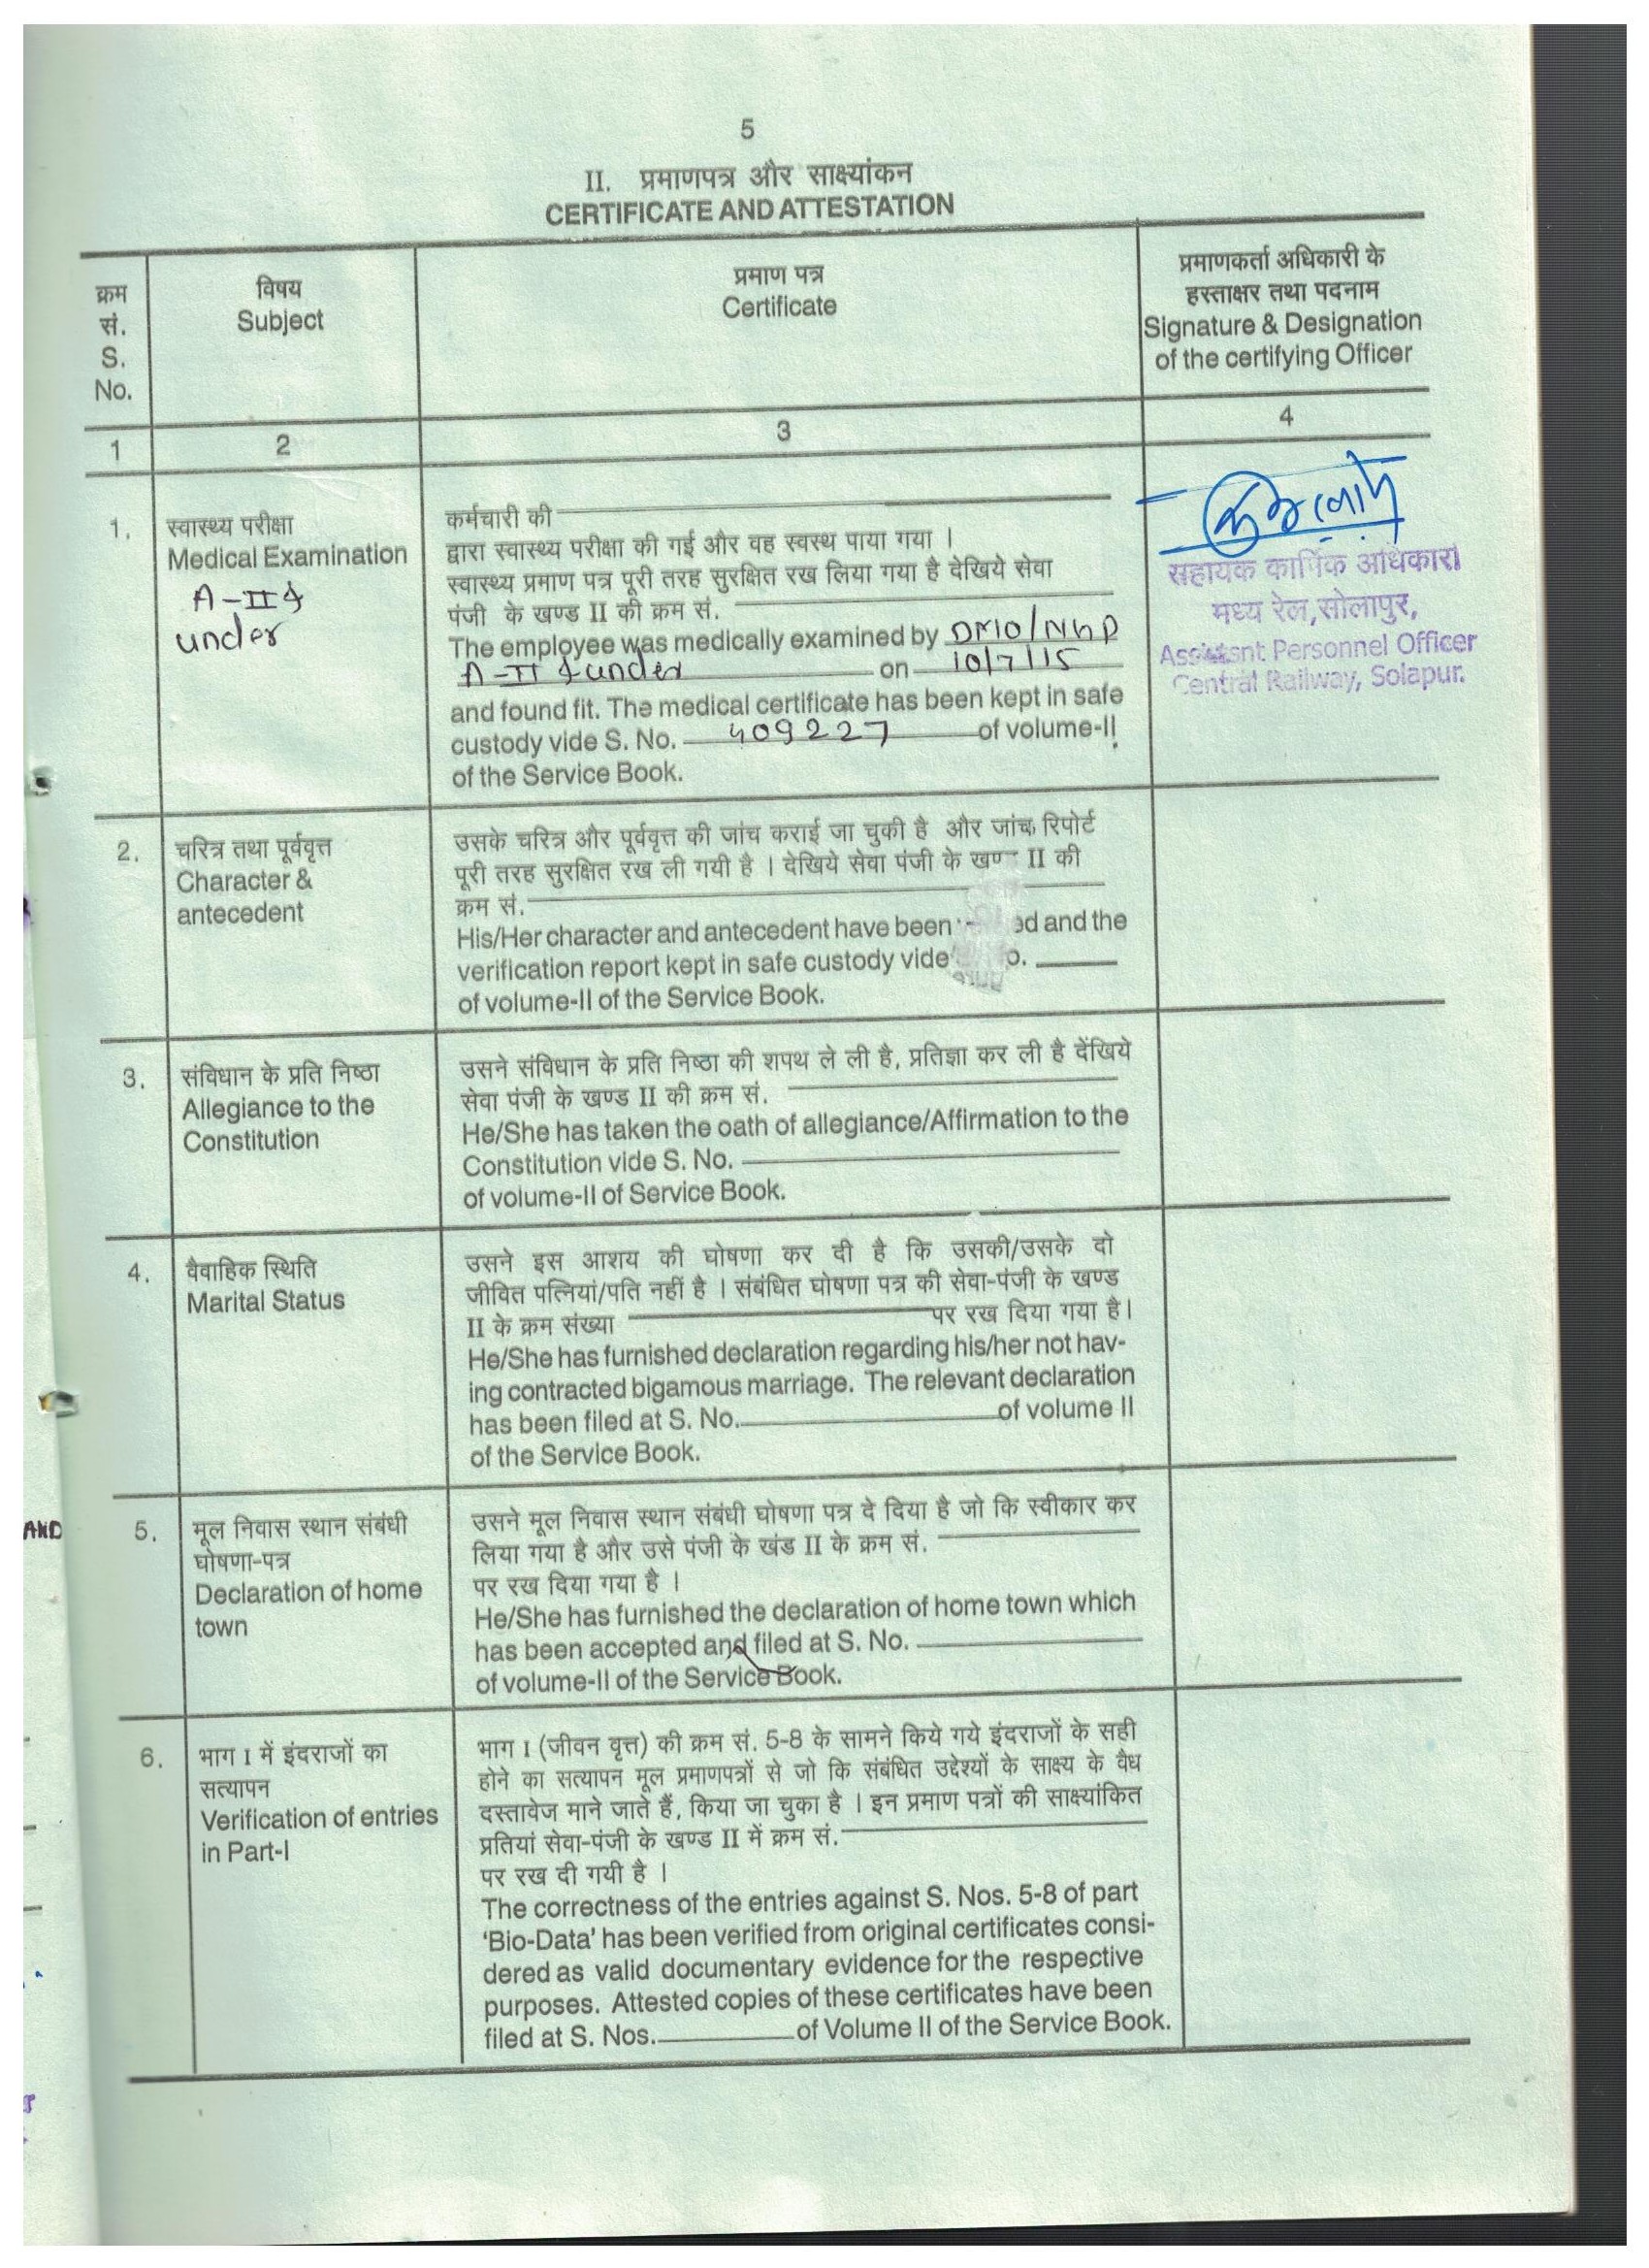 5
II. प्रमाणपत्र और साक्ष्यांकन
CERTIFICATE AND ATTESTATION
क्रम
सं.
S.
No.
विषय
Subject
प्रमाण पत्र
Certificate
प्रमाणकर्ता अधिकारी के
हस्ताक्षर तथा पदनाम
Signature & Designation
of the certifying Officer
1
2
3
4
1.
स्वास्थ्य परीक्षा
Medical Examination
A-II &
under
कर्मचारी की
द्वारा स्वास्थ्य परीक्षा की गई और वह स्वस्थ पाया गया ।
स्वास्थ्य प्रमाण पत्र पूरी तरह सुरक्षित रख लिया गया है देखिये सेवा
पंजी के खण्ड II की क्रम सं.
The employee was medically examined by DMO/
A-II & under on 10/7/15
and found fit. The medical certificate has been kept in safe
custody vide S. No. 409227 of volume-II
of the Service Book.
सहायक कार्मिक अधिकारी
मध्य रेल,सोलापुर,
Assistsnt Personnel Officer
Central Railway, Solapur.
2.
चरित्र तथा पूर्ववृत्त
Character &
antecedent
उसके चरित्र और पूर्ववृत्त की जांच कराई जा चुकी है और जांच रिपोर्ट
पूरी तरह सुरक्षित रख ली गयी है । देखिये सेवा पंजी के II की
क्रम सं.
His/Her character and antecedent have been and the
verification report kept in safe custody vide
of volume-II of the Service Book.
3.
संविधान के प्रति निष्ठा
Allegiance to the
Constitution
उसने संविधान के प्रति निष्ठा की शपथ ले ली है, प्रतिज्ञा कर ली है देंखिये
सेवा पंजी के खण्ड II की क्रम सं.
He/She has taken the oath of allegiance/Affirmation to the
Constitution vide S. No.
of volume-II of Service Book.
4.
वैवाहिक स्थिति
Marital Status
उसने इस आशय की घोषणा कर दी है कि उसकी/उसके दो
जीवित पत्नियां/पति नहीं है । संबंधित घोषणा पत्र की सेवा-पंजी के खण्ड
II के क्रम संख्या पर रख दिया गया है।
He/She has furnished declaration regarding his/her not hav-
ing contracted bigamous marriage. The relevant declaration
has been filed at S. No. of volume II
of the Service Book.
AND
5.
मूल निवास स्थान संबंधी
घोषणा-पत्र
Declaration of home
town
उसने मूल निवास स्थान संबंधी घोषणा पत्र दे दिया है जो कि स्वीकार कर
लिया गया है और उसे पंजी के खंड II के क्रम सं.
पर रख दिया गया है ।
He/She has furnished the declaration of home town which
has been accepted and filed at S. No.
of volume-II of the Service Book.
6.
भाग I में इंदराजों का
सत्यापन
Verification of entries
in Part-I
भाग I (जीवन वृत्त) की क्रम सं. 5-8 के सामने किये गये इंदराजों के सही
होने का सत्यापन मूल प्रमाणपत्रों से जो कि संबंधित उद्देश्यों के साक्ष्य के वैध
दस्तावेज माने जाते हैं, किया जा चुका है । इन प्रमाण पत्रों की साक्ष्यांकित
प्रतियां सेवा-पंजी के खण्ड II में क्रम सं.
पर रख दी गयी है ।
The correctness of the entries against S. Nos. 5-8 of part
‘Bio-Data’ has been verified from original certificates consi-
dered as valid documentary evidence for the respective
purposes. Attested copies of these certificates have been
filed at S. Nos. of Volume II of the Service Book.